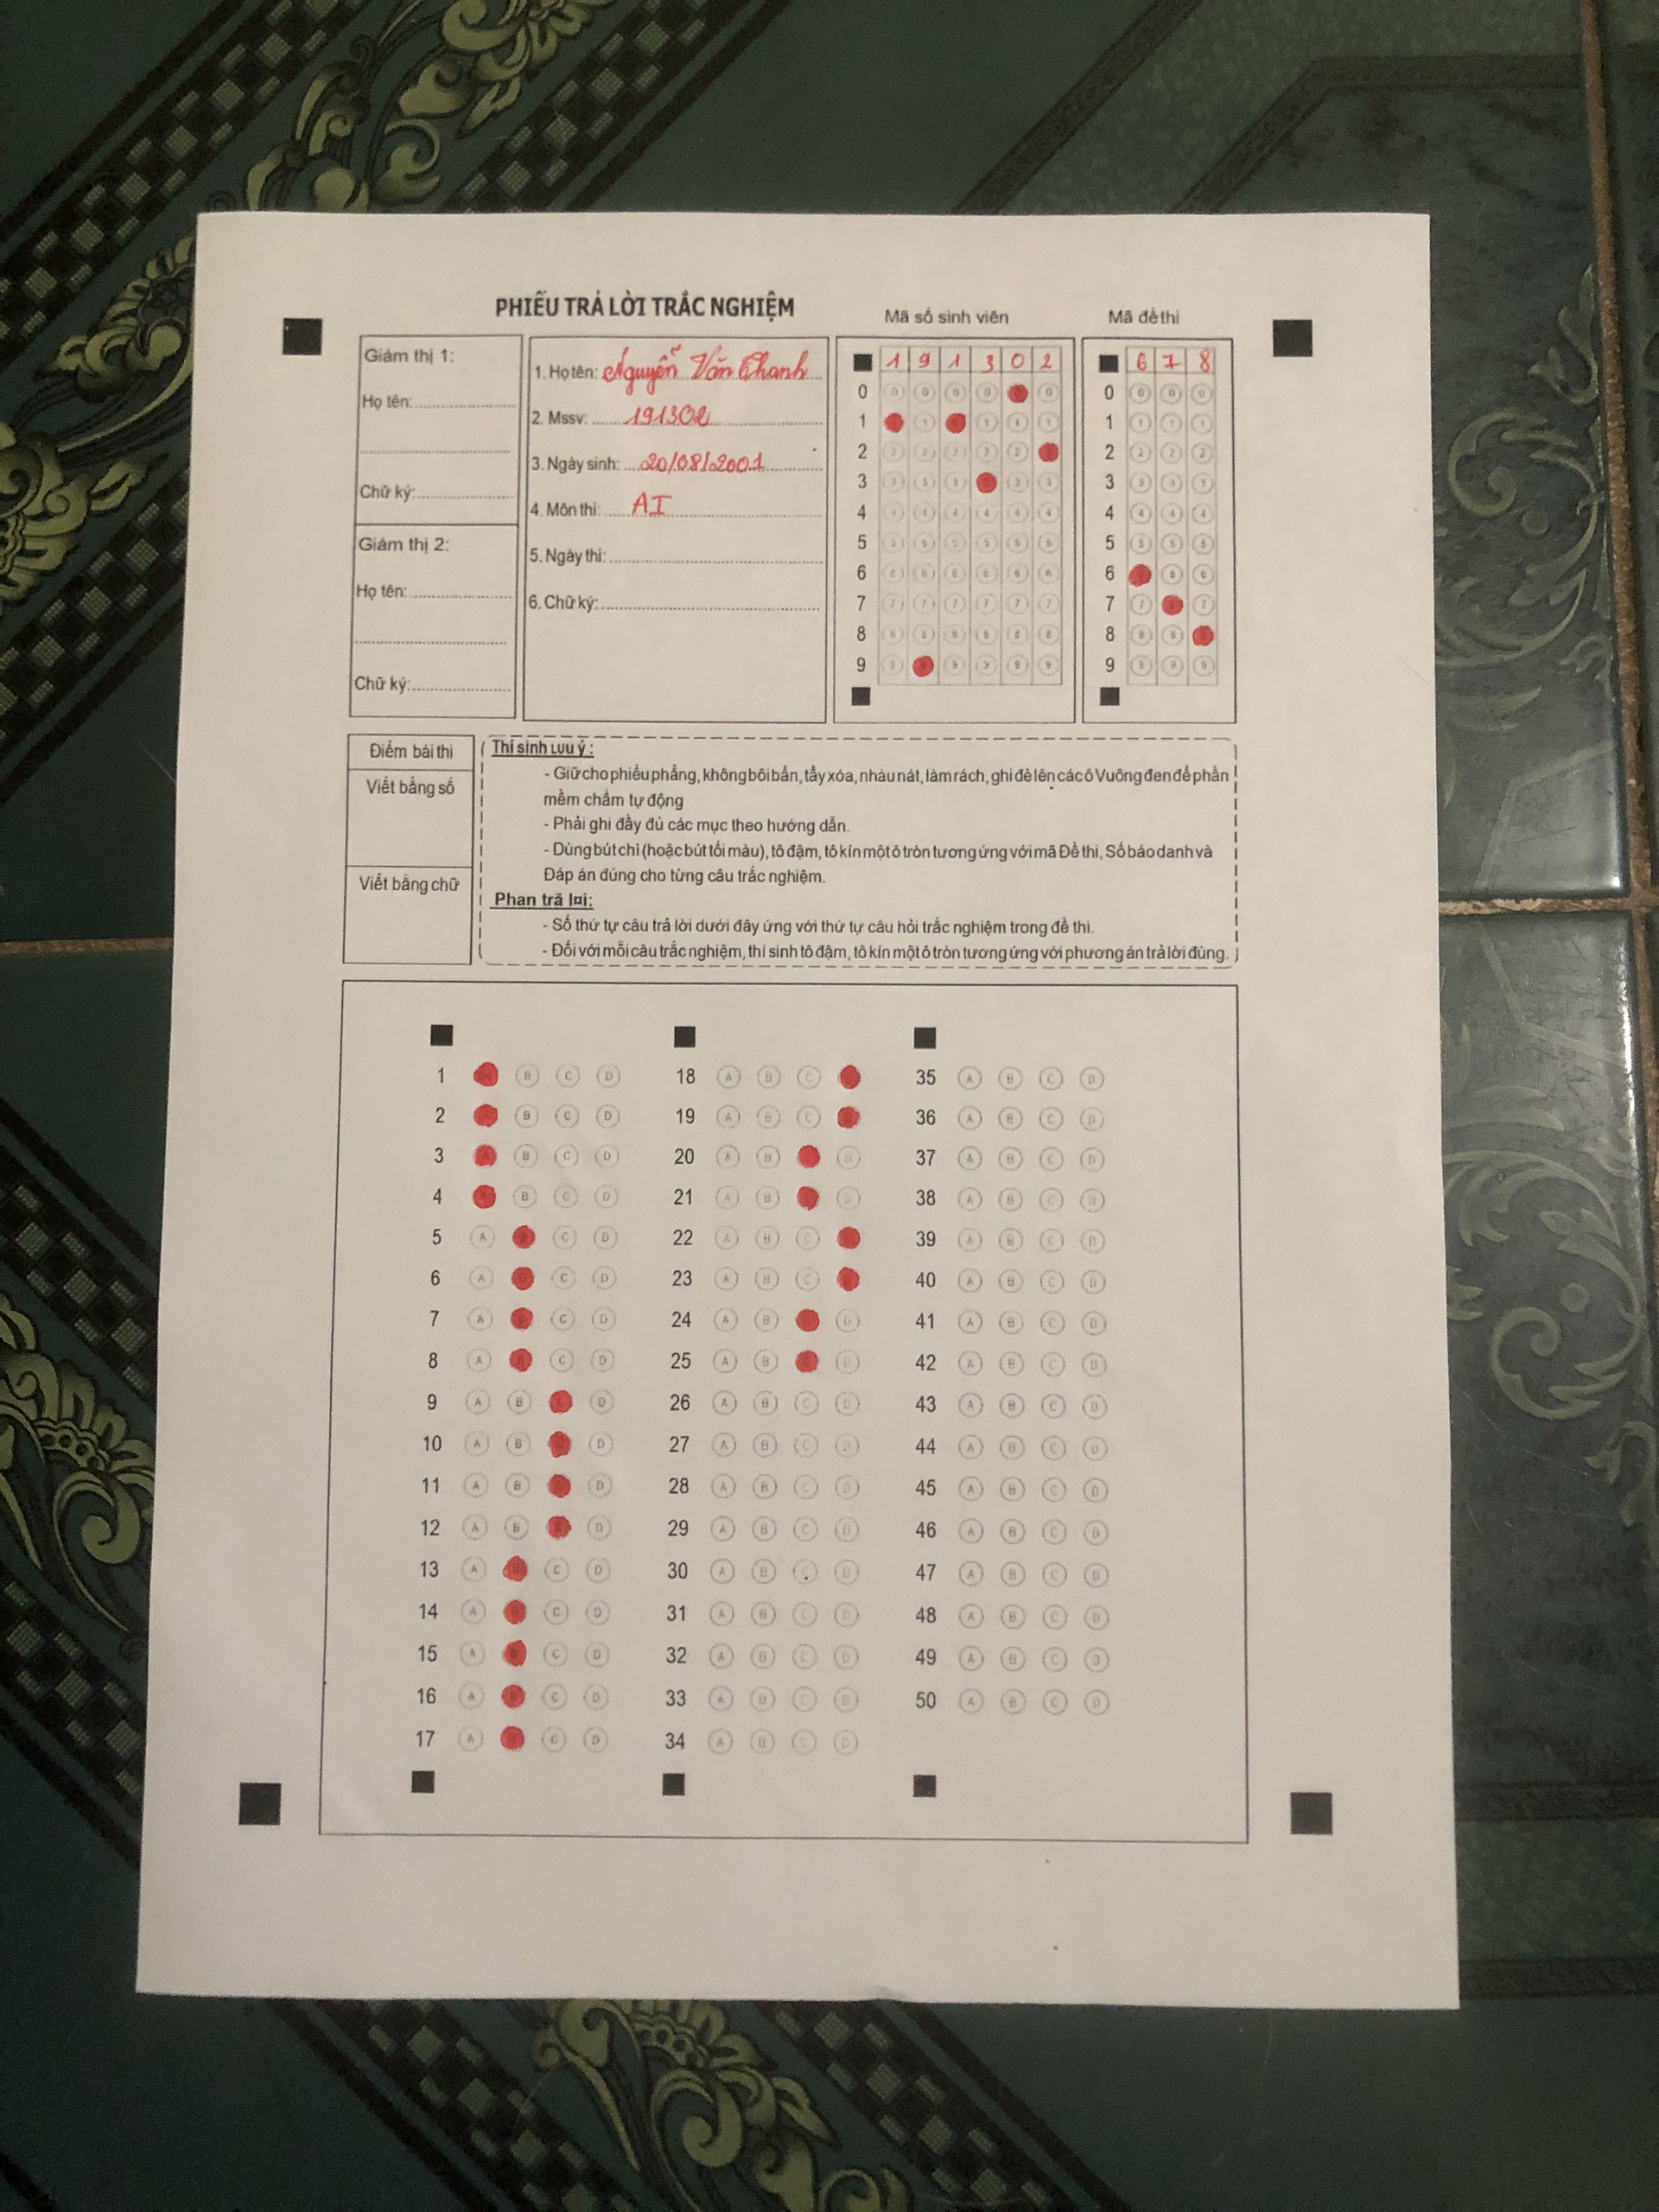 PHIẾU TRẢ LỜI TRẮC NGHIỆM
Mã số sinh viên
Mã đề thi
Giám thị 1:
Họ tên:
Chữ ký:
Giám thị 2:
Họ tên:
Chữ ký:
1. Họ tên: Nguyễn Văn Chanh
2. Mssv: 191302
3. Ngày sinh: 20/08/2001
4. Môn thi: AI
5. Ngày thi:
6. Chữ ký:
1 9 1 3 0 2
0 0 0 0 0 0
1 1 1 1 1
2 2 2 2 2 2
3 3 3 3 3 3
4 4 4 4 4 4 4
5 5 5 5 5 5 5
6 6 6 6 6 6 6
7 7 7 7 7 7 7
8 8 8 8 8 8 8
9 9 9 9 9 9
6 7 8
0 0 0 0
1 1 1 1
2 2 2 2
3 3 3 3
4 4 4 4
5 5 5 5
6 6 6
7 7 7
8 8 8
9 9 9 9
Điểm bài thi
Viết bằng số
Viết bằng chữ
Thí sinh Lưu ý :
- Giữ cho phiếu phẳng, không bôi bẩn, tẩy xóa, nhàu nát, làm rách, ghi đè lên các ô Vuông đen để phần
mềm chấm tự động
- Phải ghi đầy đủ các mục theo hướng dẫn.
- Dùng bút chì (hoặc bút tối màu), tô đậm, tô kín một ô tròn tương ứng với mã Đề thi, Số báo danh và
Đáp án đúng cho từng câu trắc nghiệm.
Phan trã lời:
- Số thứ tự câu trả lời dưới đây ứng với thứ tự câu hỏi trắc nghiệm trong đề thi.
- Đối với mỗi câu trắc nghiệm, thí sinh tô đậm, tô kín một ô tròn tương ứng với phương án trả lời đúng.
1 B C D
2 B C D
3 B C D
4 B C D
5 A C D
6 A C D
7 A C D
8 A C D
9 A B D
10 A B D
11 A B D
12 A B D
13 A C D
14 A C D
15 A C D
16 A C D
17 A C D
18 A B C
19 A B C
20 A B D
21 A B D
22 A B C
23 A B C
24 A B D
25 A B D
26 A B C D
27 A B C D
28 A B C D
29 A B C D
30 A B C D
31 A B C D
32 A B C D
33 A B C D
34 A B C D
35 A B C D
36 A B C D
37 A B C D
38 A B C D
39 A B C D
40 A B C D
41 A B C D
42 A B C D
43 A B C D
44 A B C D
45 A B C D
46 A B C D
47 A B C D
48 A B C D
49 A B C D
50 A B C D